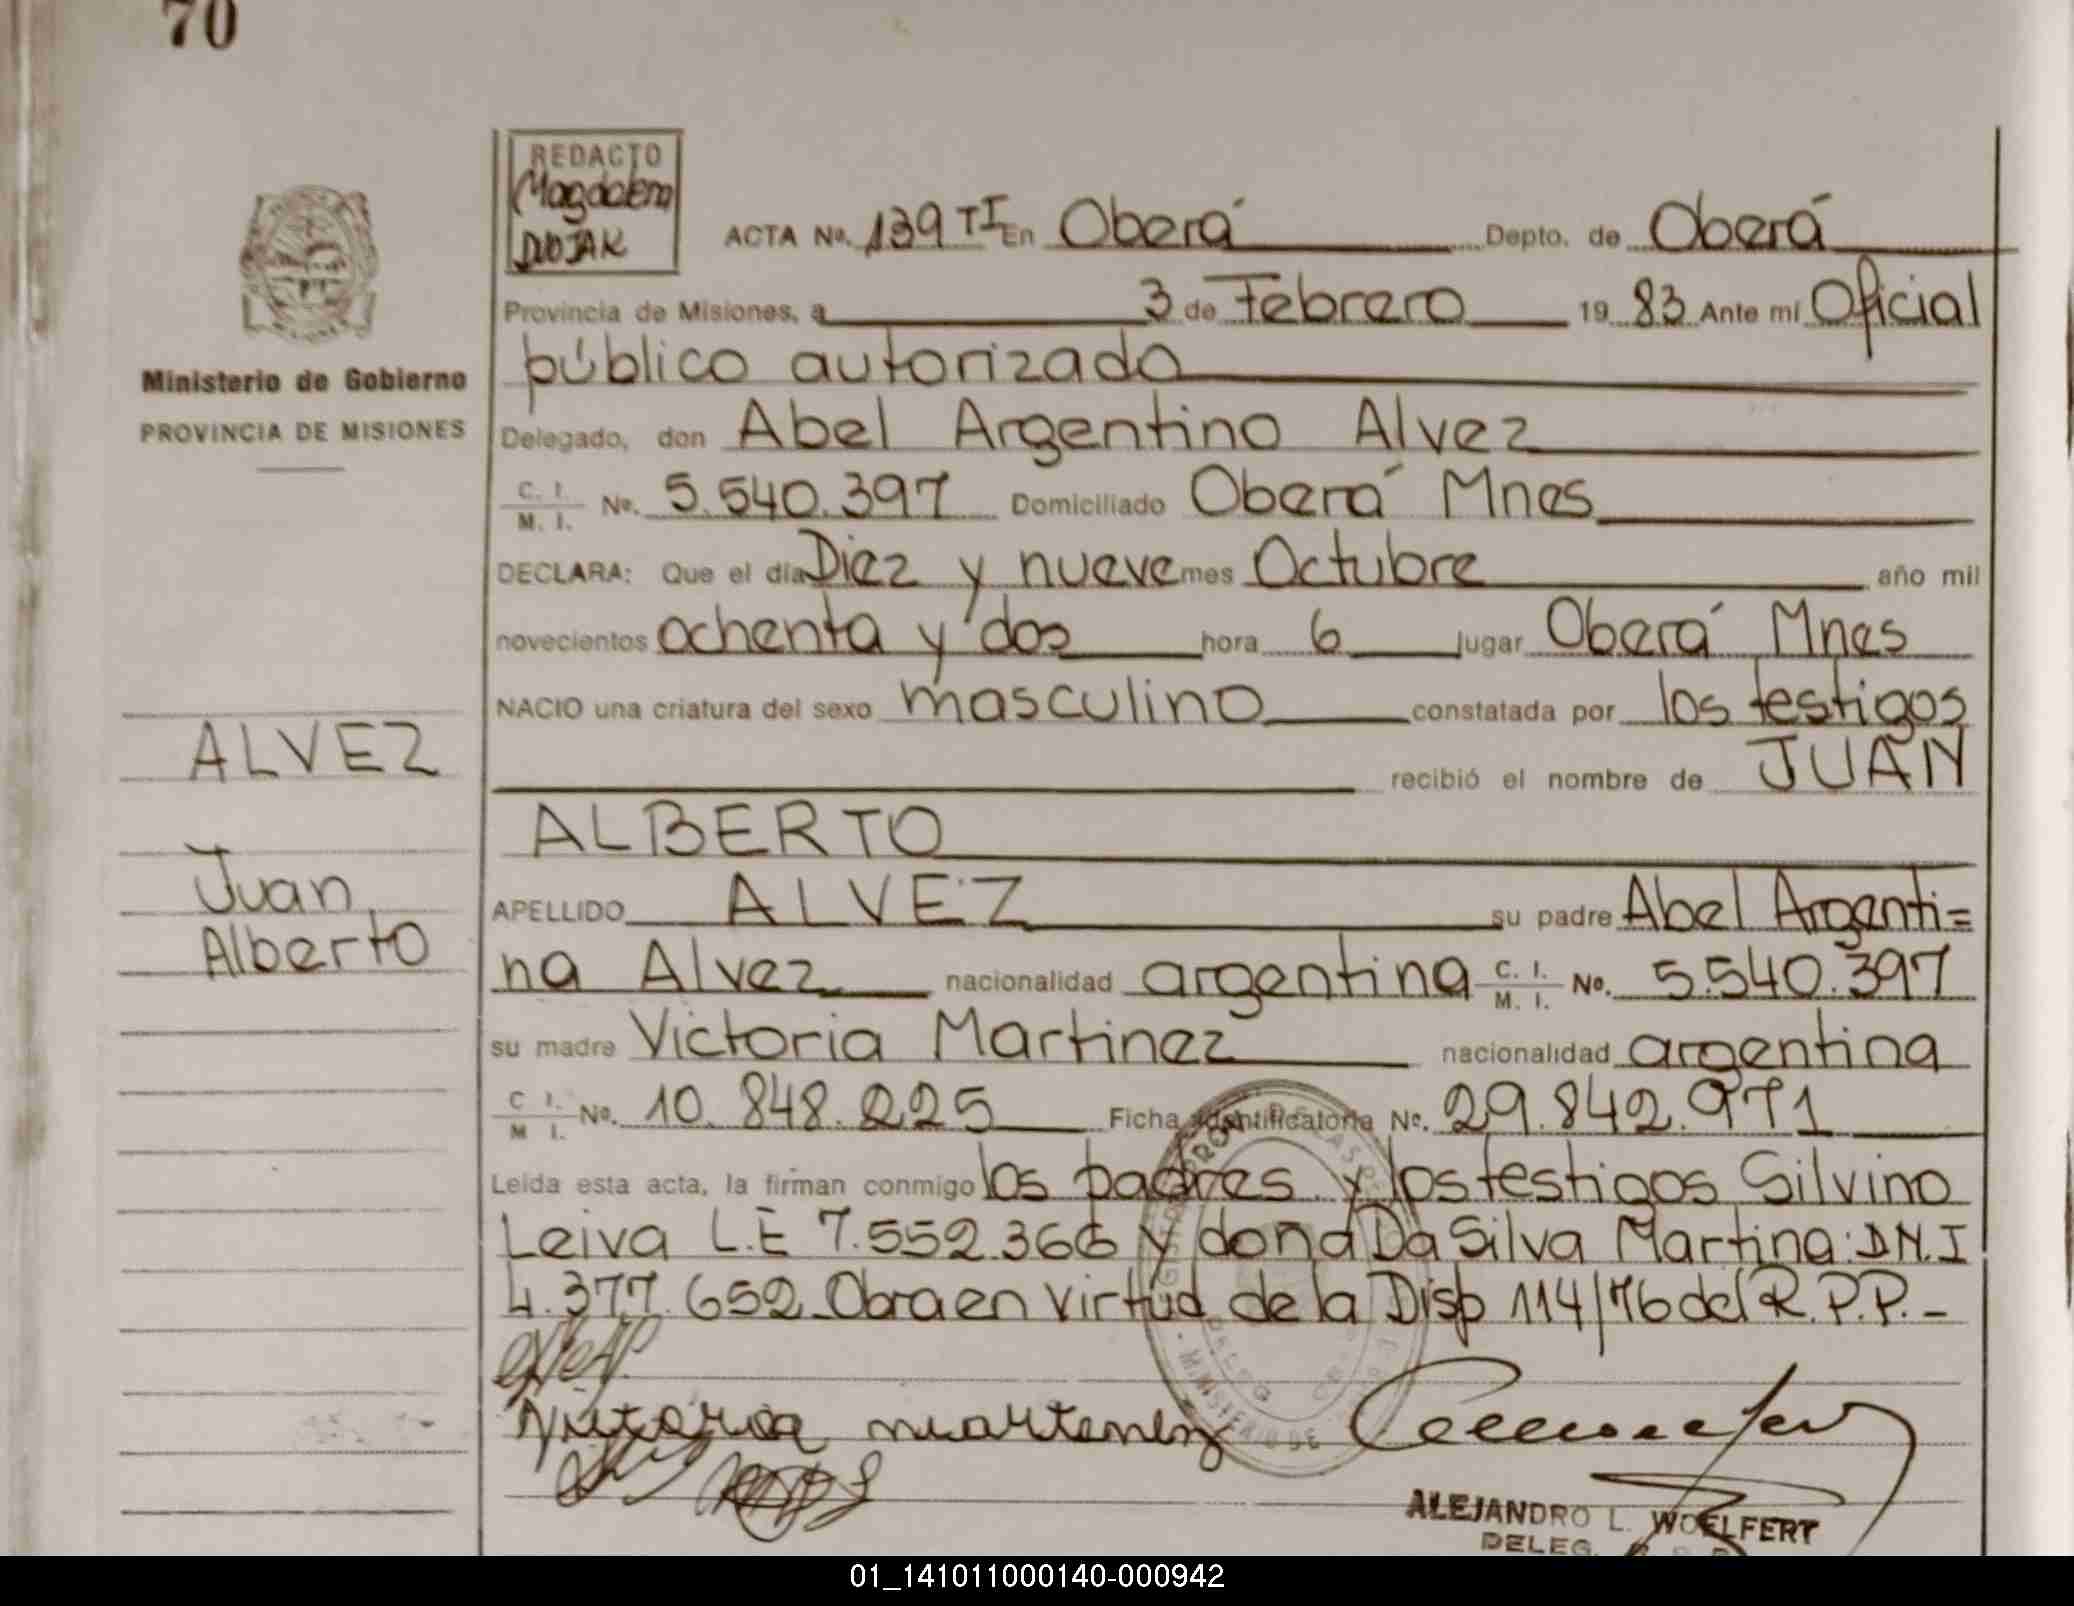 70
REDACTO
Magdalena
DUDJAK
ACTA No. 139 TI En Oberá Depto. de Oberá
Provincia de Misiones, a 3 de Febrero 19 83 Ante mí Oficial
público autorizado
Ministerio de Gobierno
PROVINCIA DE MISIONES
Delegado, don Abel Argentino Alvez
C. I. M. I. No. 5.540.397 Domiciliado Oberá Mnes
DECLARA: Que el día Diez y nueve mes Octubre año mil
novecientos ochenta y dos hora 6 lugar Oberá Mnes
NACIO una criatura del sexo masculino constatada por los testigos
ALVEZ
recibió el nombre de JUAN
ALBERTO
Juan
Alberto
APELLIDO ALVEZ su padre Abel Argenti=
na Alvez nacionalidad argentina C. I. M. I. No. 5.540.397
su madre Victoria Martinez nacionalidad argentina
C I. M I. No. 10.848.225 Ficha identificatoria No. 29.842.971
Leida esta acta, la firman conmigo los padres y los testigos Silvino
Leiva L.E 7.552.366 y dona Da Silva Martina: D.N.I
4.377.652 Obra en virtud de la Disp 114/76 del R.P.P.-
ALEJANDRO L. WOELFERT
DELEG.
01_141011000140-000942